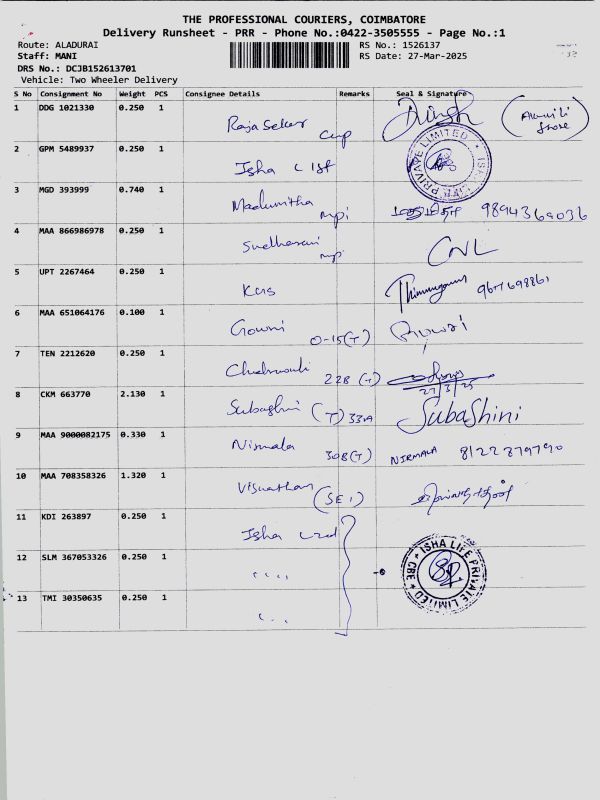 THE PROFESSIONAL COURIERS, COIMBATORE
Delivery Runsheet - PRR - Phone No.:0422-3505555 - Page No.:1
Route: ALADURAI RS No.: 1526137
Staff: MANI RS Date: 27-Mar-2025
DRS No.: DCJB152613701
Vehicle: Two Wheeler Delivery
S No Consignment No Weight PCS Consignee Details Remarks Seal & Signature
1 DDG 1021330 0.250 1 Rajasekar
2 GPM 5489937 0.250 1 Isha ISHA LIFE PRIVATE LIMITED
3 MGD 393999 0.740 1 Madumitha 9894369036
4 MAA 866986978 0.250 1 CNL
5 UPT 2267464 0.250 1
6 MAA 651064176 0.100 1 Gowri 0-15(T)
7 TEN 2212620 0.250 1 22B (T) 27/3/25
8 CKM 663770 2.130 1 Subashini (T) 33A SubaShini
9 MAA 9000082175 0.330 1 Nirmala 308(T) NIRMALA 8122379790
10 MAA 708358326 1.320 1 Viswanathan
11 KDI 263897 0.250 1 Isha
12 SLM 367053326 0.250 1 ISHA LIFE PRIVATE LIMITED CBE
13 TMI 30350635 0.250 1